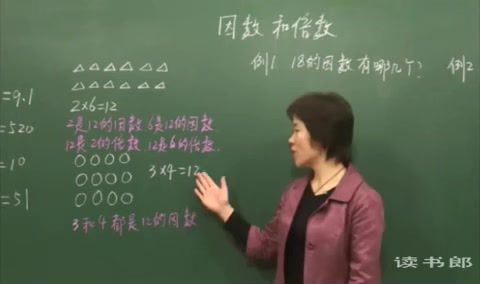 因数和倍数
例1 18的因数有哪几个? 例2
=9.1
=520
=10
=51
2×6=12
2是12的因数 6是12的因数.
12是2的倍数. 12是6的倍数.
3×4=12
3和4都是12的因数
读书郎